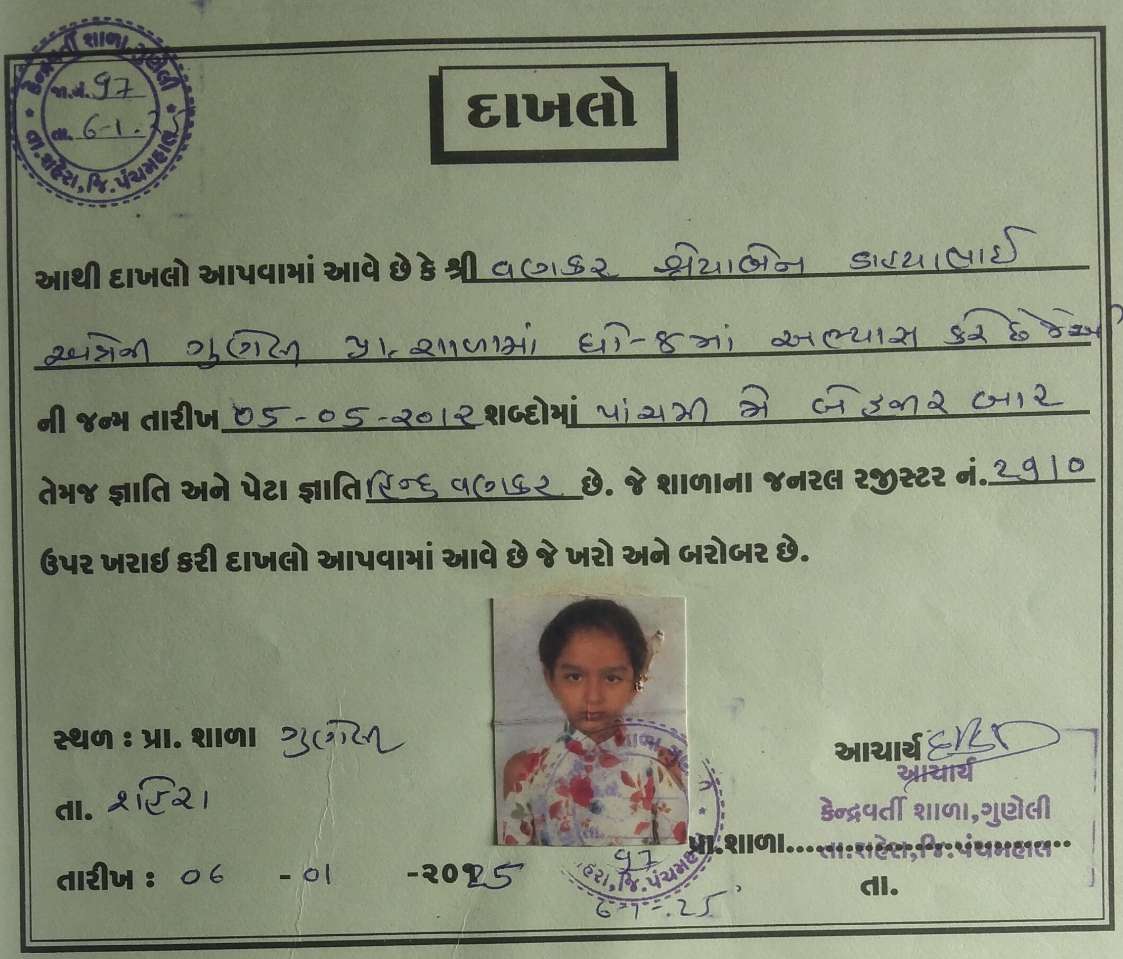 કેન્દ્રવર્તી શાળા, ગુણેલી
જા.નં. 97
તા. 6-1.25
તા.શહેરા, જિ.પંચમહાલ
દાખલો
આથી દાખલો આપવામાં આવે છે કે શ્રી વણકર શ્રેયાબેન ડાહ્યાભાઈ
અત્રેની ગુણેલી પ્રા. શાળામાં ધો-૬માં અભ્યાસ કરે છે જેઓ
ની જન્મ તારીખ ૦૫-૦૫-૨૦૧૨ શબ્દોમાં પાંચમી મે બે હજાર બાર
તેમજ જ્ઞાતિ અને પેટા જ્ઞાતિ હિન્દુ વણકર છે. જે શાળાના જનરલ રજીસ્ટર નં. 2910
ઉપર ખરાઇ કરી દાખલો આપવામાં આવે છે જે ખરો અને બરોબર છે.
સ્થળ : પ્રા. શાળા ગુણેલી
તા. શહેરા
તારીખ : 06 -01 -૨૦25
97
જિ.પંચમહાલ
6-1-.25
આચાર્ય
આચાર્ય
કેન્દ્રવર્તી શાળા,ગુણેલી
તા.શહેરા,જિ.પંચમહાલ
પ્રા.શાળા..............................
તા.